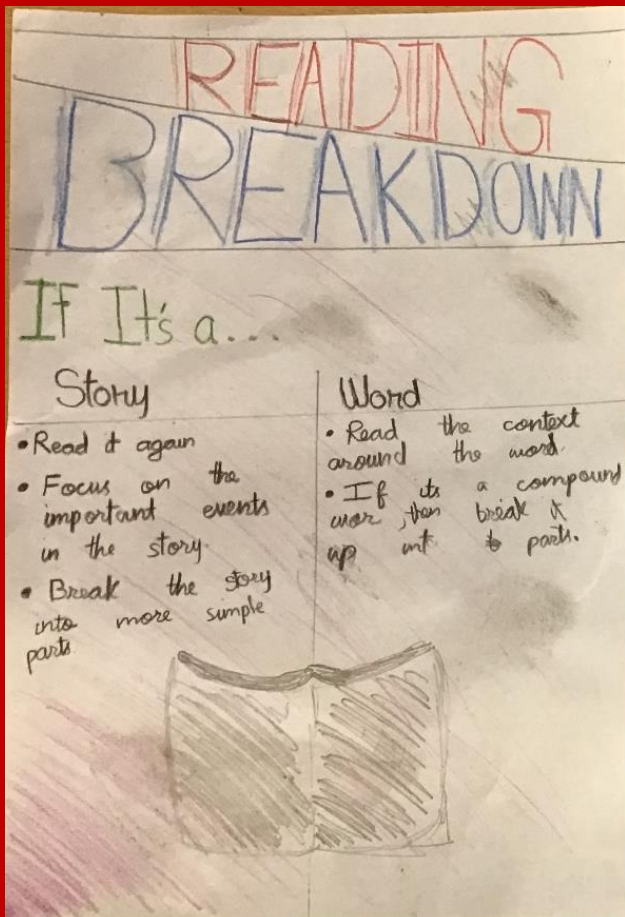 READING
BREAKDOWN
If It's a...
Story
• Read it again
• Focus on the
important events
in the story.
• Break the story
into more simple
parts
Word
• Read the context
around the word.
• If its a compound
wor, then break it
up int to parts.